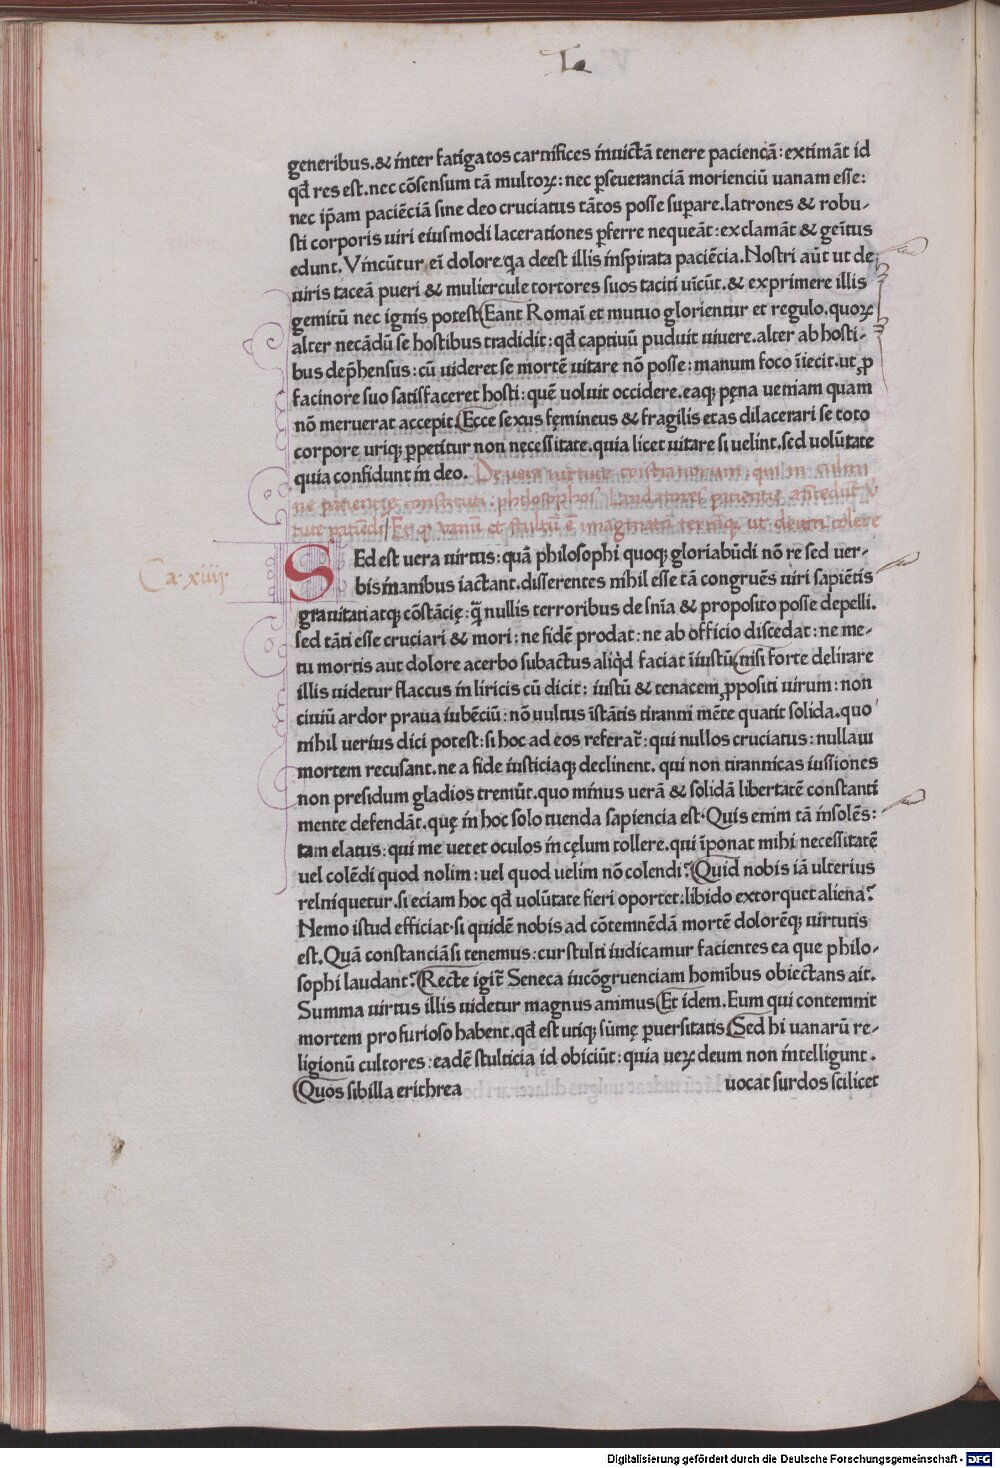 L
generibus.& inter fatigatos carnifices inuictā tenere pacienciā: extimāt id
qđ res est.nec cōsensum tā multoꝝ: nec ꝑseueranciā morienciū uanam esse:
nec ip̄am paciēciā sine deo cruciatus tātos posse suꝑare.latrones & robu-
sti corporis uiri eiusmodi lacerationes ꝑferre nequeāt: exclamāt & gēitus
edunt. Vincūtur ei dolore.qa deest illis inspirata paciēcia. Nostri aūt ut de
uiris taceā pueri & muliercule tortores suos taciti uīcūt.& exprimere illis
gemitū nec ignis potest Eant Romāi et mutuo glorientur et regulo.quoꝝ
alter necādū se hostibus tradidit: qđ captiuū puduit uiuere.alter ab hosti-
bus dep̄hensus: cū uideret se mortē uitare nō posse: manum foco īiecit.ut ꝓ
facinore suo satisfaceret hosti: quē uoluit occidere.eaqꝫ pęna ueniam quam
nō meruerat accepit. Ecce sexus fęmineus & fragilis etas dilacerari se toto
corpore uriqꝫ ꝑpetitur non necessitate.quia licet uitare si uelint.sed uolūtate
quia confidunt in deo. De uera uirtute cristianorum, qui in culmi
ne patientie constituti: philosophos laudatores patientie antecedūt v
tute patiēdi Et qꝫ vanū et stultū ē imaginatā terrāqꝫ ut deum colere
Ca. xiiij.
SEd est uera uirtus: quā philosophi quoqꝫ gloriabūdi nō re sed uer-
bis inanibus iactant.disserentes nihil esse tā congruēs uiri sapiētis
grauitati atqꝫ cōstācię: q̄ nullis terroribus de snīa & proposito posse depelli.
sed tāti esse cruciari & mori: ne fidē prodat: ne ab officio discedat: ne me-
tu mortis aut dolore acerbo subactus aliq̇d faciat īiustū nisi forte delirare
illis uidetur flaccus in liricis cū dicit: iustū & tenacem ꝓpositi uirum: non
ciuiū ardor praua iubēciū: nō uultus īstātis tiranni mēte quatit solida.quo
nihil uerius dici potest: si hoc ad eos referat̄: qui nullos cruciatus: nullam
mortem recusant.ne a fide iusticiaqꝫ declinent. qui non tirannicas iussiones
non presidum gladios tremūt.quo minus uerā & solidā libertatē constanti
mente defendāt.quę in hoc solo tuenda sapiencia est. Quis enim tā insolēs:
tam elatus: qui me uetet oculos in cęlum tollere.qui īponat mihi necessitatē
uel colēdi quod nolim: uel quod uelim nō colendi? Quid nobis iā ulterius
relinquetur.si eciam hoc qđ uolūtate fieri oportet: libido extorquet aliena?
Nemo istud efficiat.si quidē nobis ad cōtemnēdā mortē dolorēqꝫ uirtutis
est. Quā constanciā si tenemus: cur stulti iudicamur facientes ea que philo-
sophi laudant? Recte igit̄ Seneca incōgruenciam hominibus obiectans ait.
Summa uirtus illis uidetur magnus animus Et idem. Eum qui contemnit
mortem pro furioso habent.qđ est utiqꝫ sūmę ꝑuersitatis Sed hi uanarū re-
ligionū cultores: eadē stulticia id obiciūt: quia ueꝝ deum non intelligunt.
Quos sibilla erithrea uocat surdos scilicet
Digitalisierung gefördert durch die Deutsche Forschungsgemeinschaft - DFG